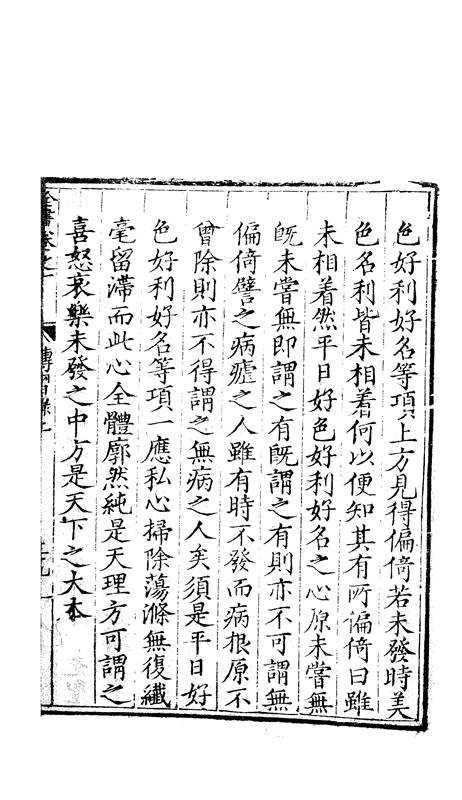 色好利好名等項上方見得偏倚若未發時美
色名利皆未相着何以便知其有所偏倚曰雖
未相着然平日好色好利好名之心原未嘗無
旣未嘗無即謂之有旣謂之有則亦不可謂無
偏倚譬之病瘧之人雖有時不發而病根原不
曾除則亦不得謂之無病之人矣須是平日好
色好利好名等項一應私心掃除蕩滌無復纖
毫留滯而此心全體廓然純是天理方可謂之
喜怒哀樂未發之中方是天下之大本
全書卷之一
傳習錄上